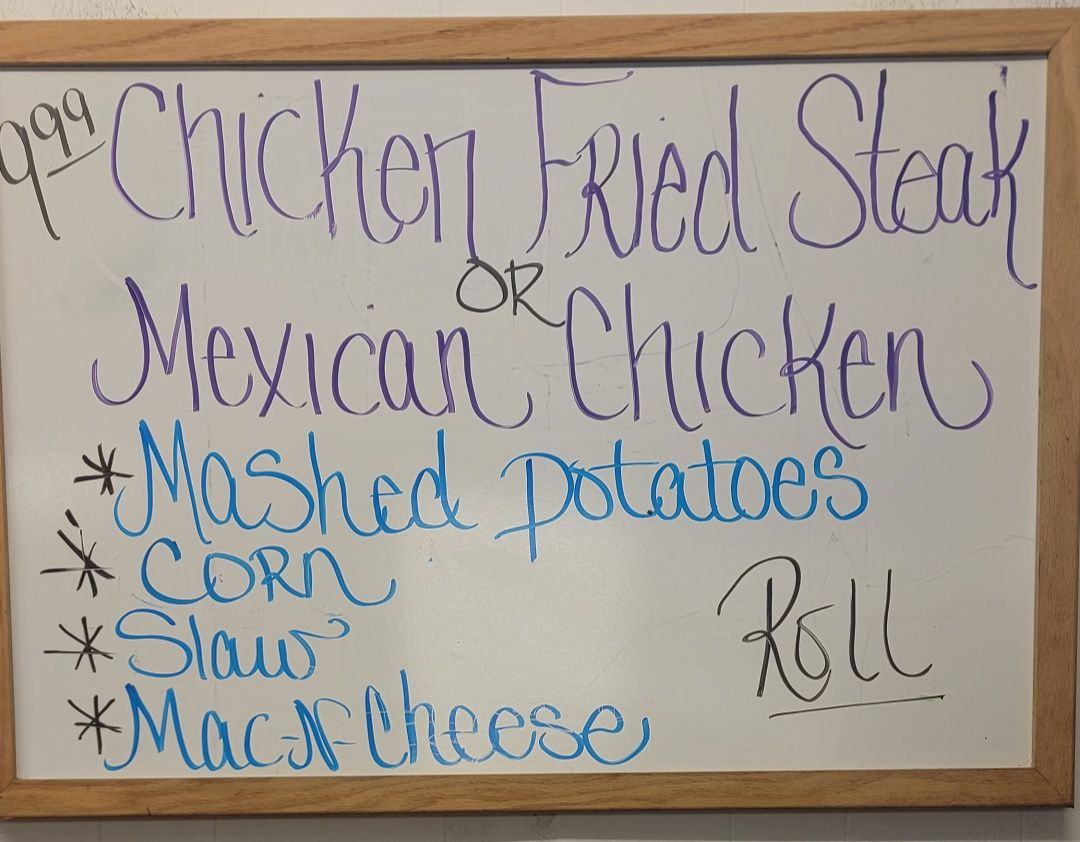 999 Chicken Fried Steak
OR
Mexican Chicken
* Mashed potatoes
* CORN
* Slaw
* Mac-N-Cheese
Roll